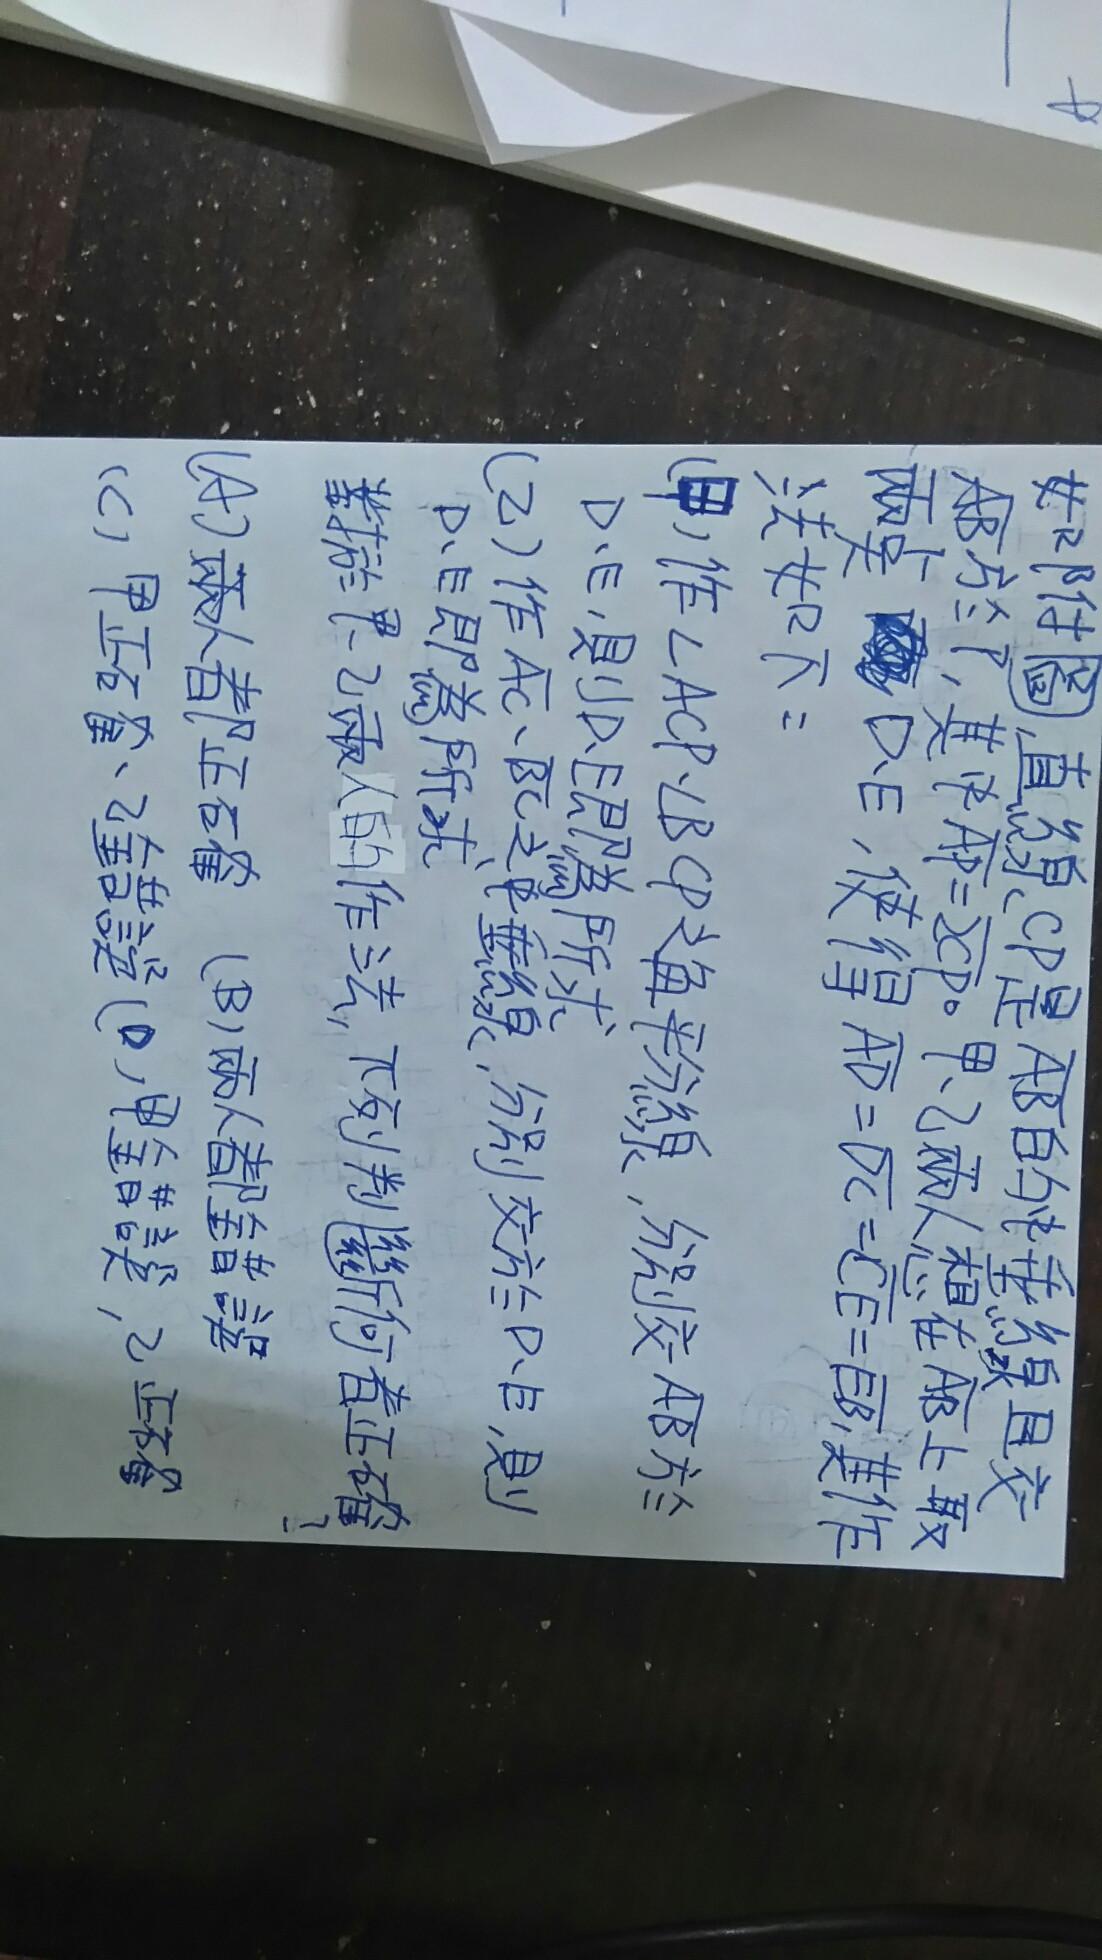 如附圖,直線CP是AB的中垂線且交
AB於P,其中AP=2CP。甲、乙兩人想在AB上取
兩點 D、E,使得AD=DC=CE=EB,其作
法如下=
(甲)作∠ACP、∠BCP之角平分線,分別交AB於
D、E,則D、E即為所求
(乙)作AC、BC之中垂線,分別交於D、E,則
D、E即為所求
對於甲、乙兩人的作法,下列判斷何者正確?
(A)兩人都正確 (B)兩人都錯誤
(C)甲正確、乙錯誤(D)甲錯誤,乙正確